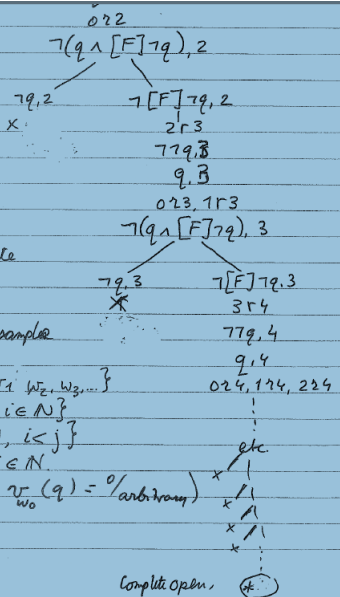 0r2
¬(q ∧ [F]¬q), 2
¬q, 2    ¬[F]¬q, 2
×    2r3
¬¬q, 3
q, 3
0r3, 1r3
¬(q ∧ [F]¬q), 3
¬q, 3    ¬[F]¬q, 3
×    3r4
¬¬q, 4
q, 4
0r4, 1r4, 2r4
w₂, w₃, ...}
i ∈ ℕ}
, i < j}
∈ ℕ.
v_w₀ (q) = 0/arbitrary)
etc.
×
×
×
×
Complete open. *